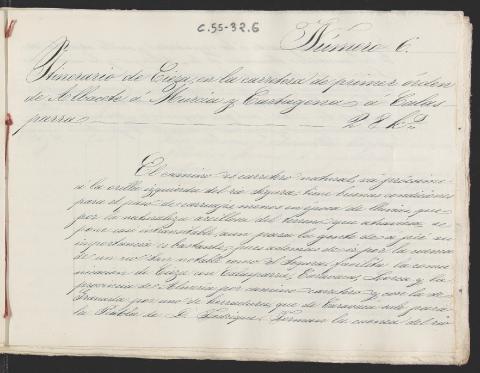 C.55-32.6
Número 6.
Itinerario de Cieza, en la carretera de primer órden
de Albacete á Murcia y Cartagena á Calas
parra 28 k.s
El camino es carretero natural, vá próximo
á la orilla izquierda del rio Segura; tiene buenas condiciones
para el paso de carruajes menos en época de lluvias que
por la naturaleza arcillosa del terreno que atraviesa, se
pone intransitable aun para la gente de á pié; su
importancia es bastante, pues además de ir por la cuenca
de un rio tan notable como el Segura, facilita la comu
nicacion de Cieza con Calasparra, Caravaca, Lorca y la
provincia de Almería por camino carretero y con la de
Granada por uno de herradura que de Caravaca sale para
la Puebla de D. Fadrique. Forman la cuenca del rio